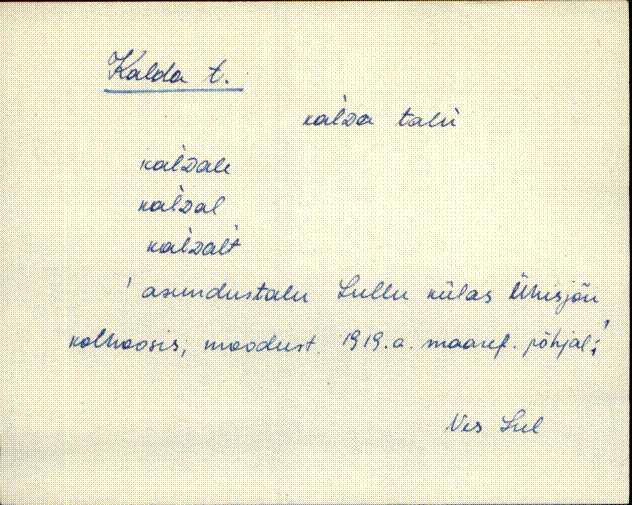 Kalda t.
kalda talu
kaldale
kaldal
kaldalt
' asundustalu Sullu külas Ühisjõu
kolhoosis, moodust. 1919.a. maaref. põhjal.'
Ves Sul